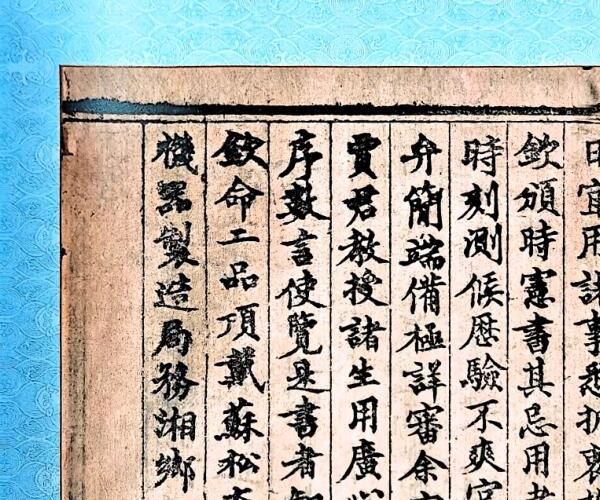 日宜用諸事悉折衷
欽頒時憲書其忌用
時刻測候歷驗不爽
弁簡端備極詳審余
賈君教授諸生用廣
序數言使覽是書者
欽命二品頂戴蘇松
機器製造局務湘鄉